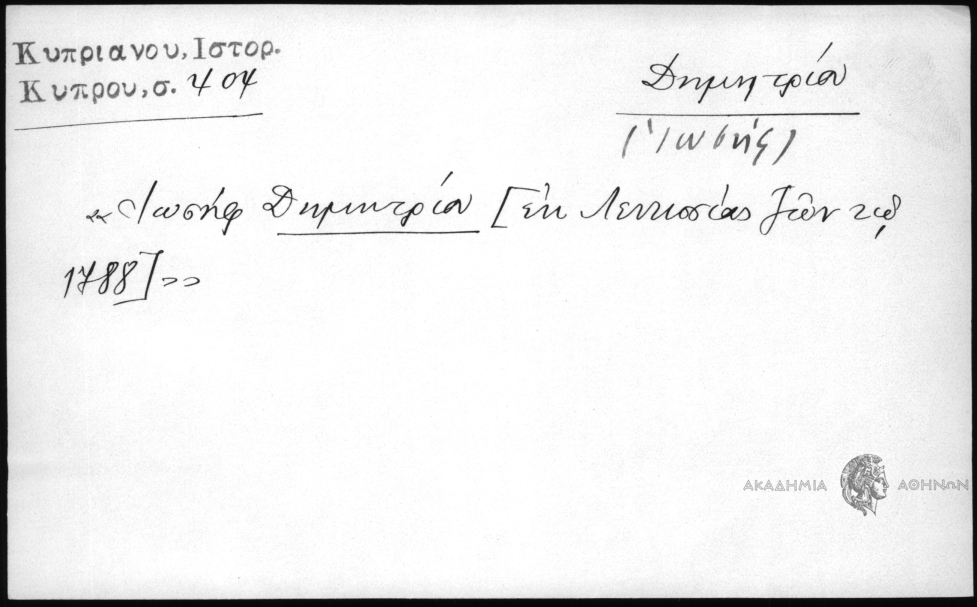 Κυπριανου, Ιστορ.
Κυπρου, σ. 404
Δημητρίου
(Ἰωσήφ)
«Ἰωσήφ Δημητρίου [ἐκ Λευκωσίας ζῶν τῷ
1788]»
ΑΚΑΔΗΜΙΑ ΑΘΗΝΩΝ